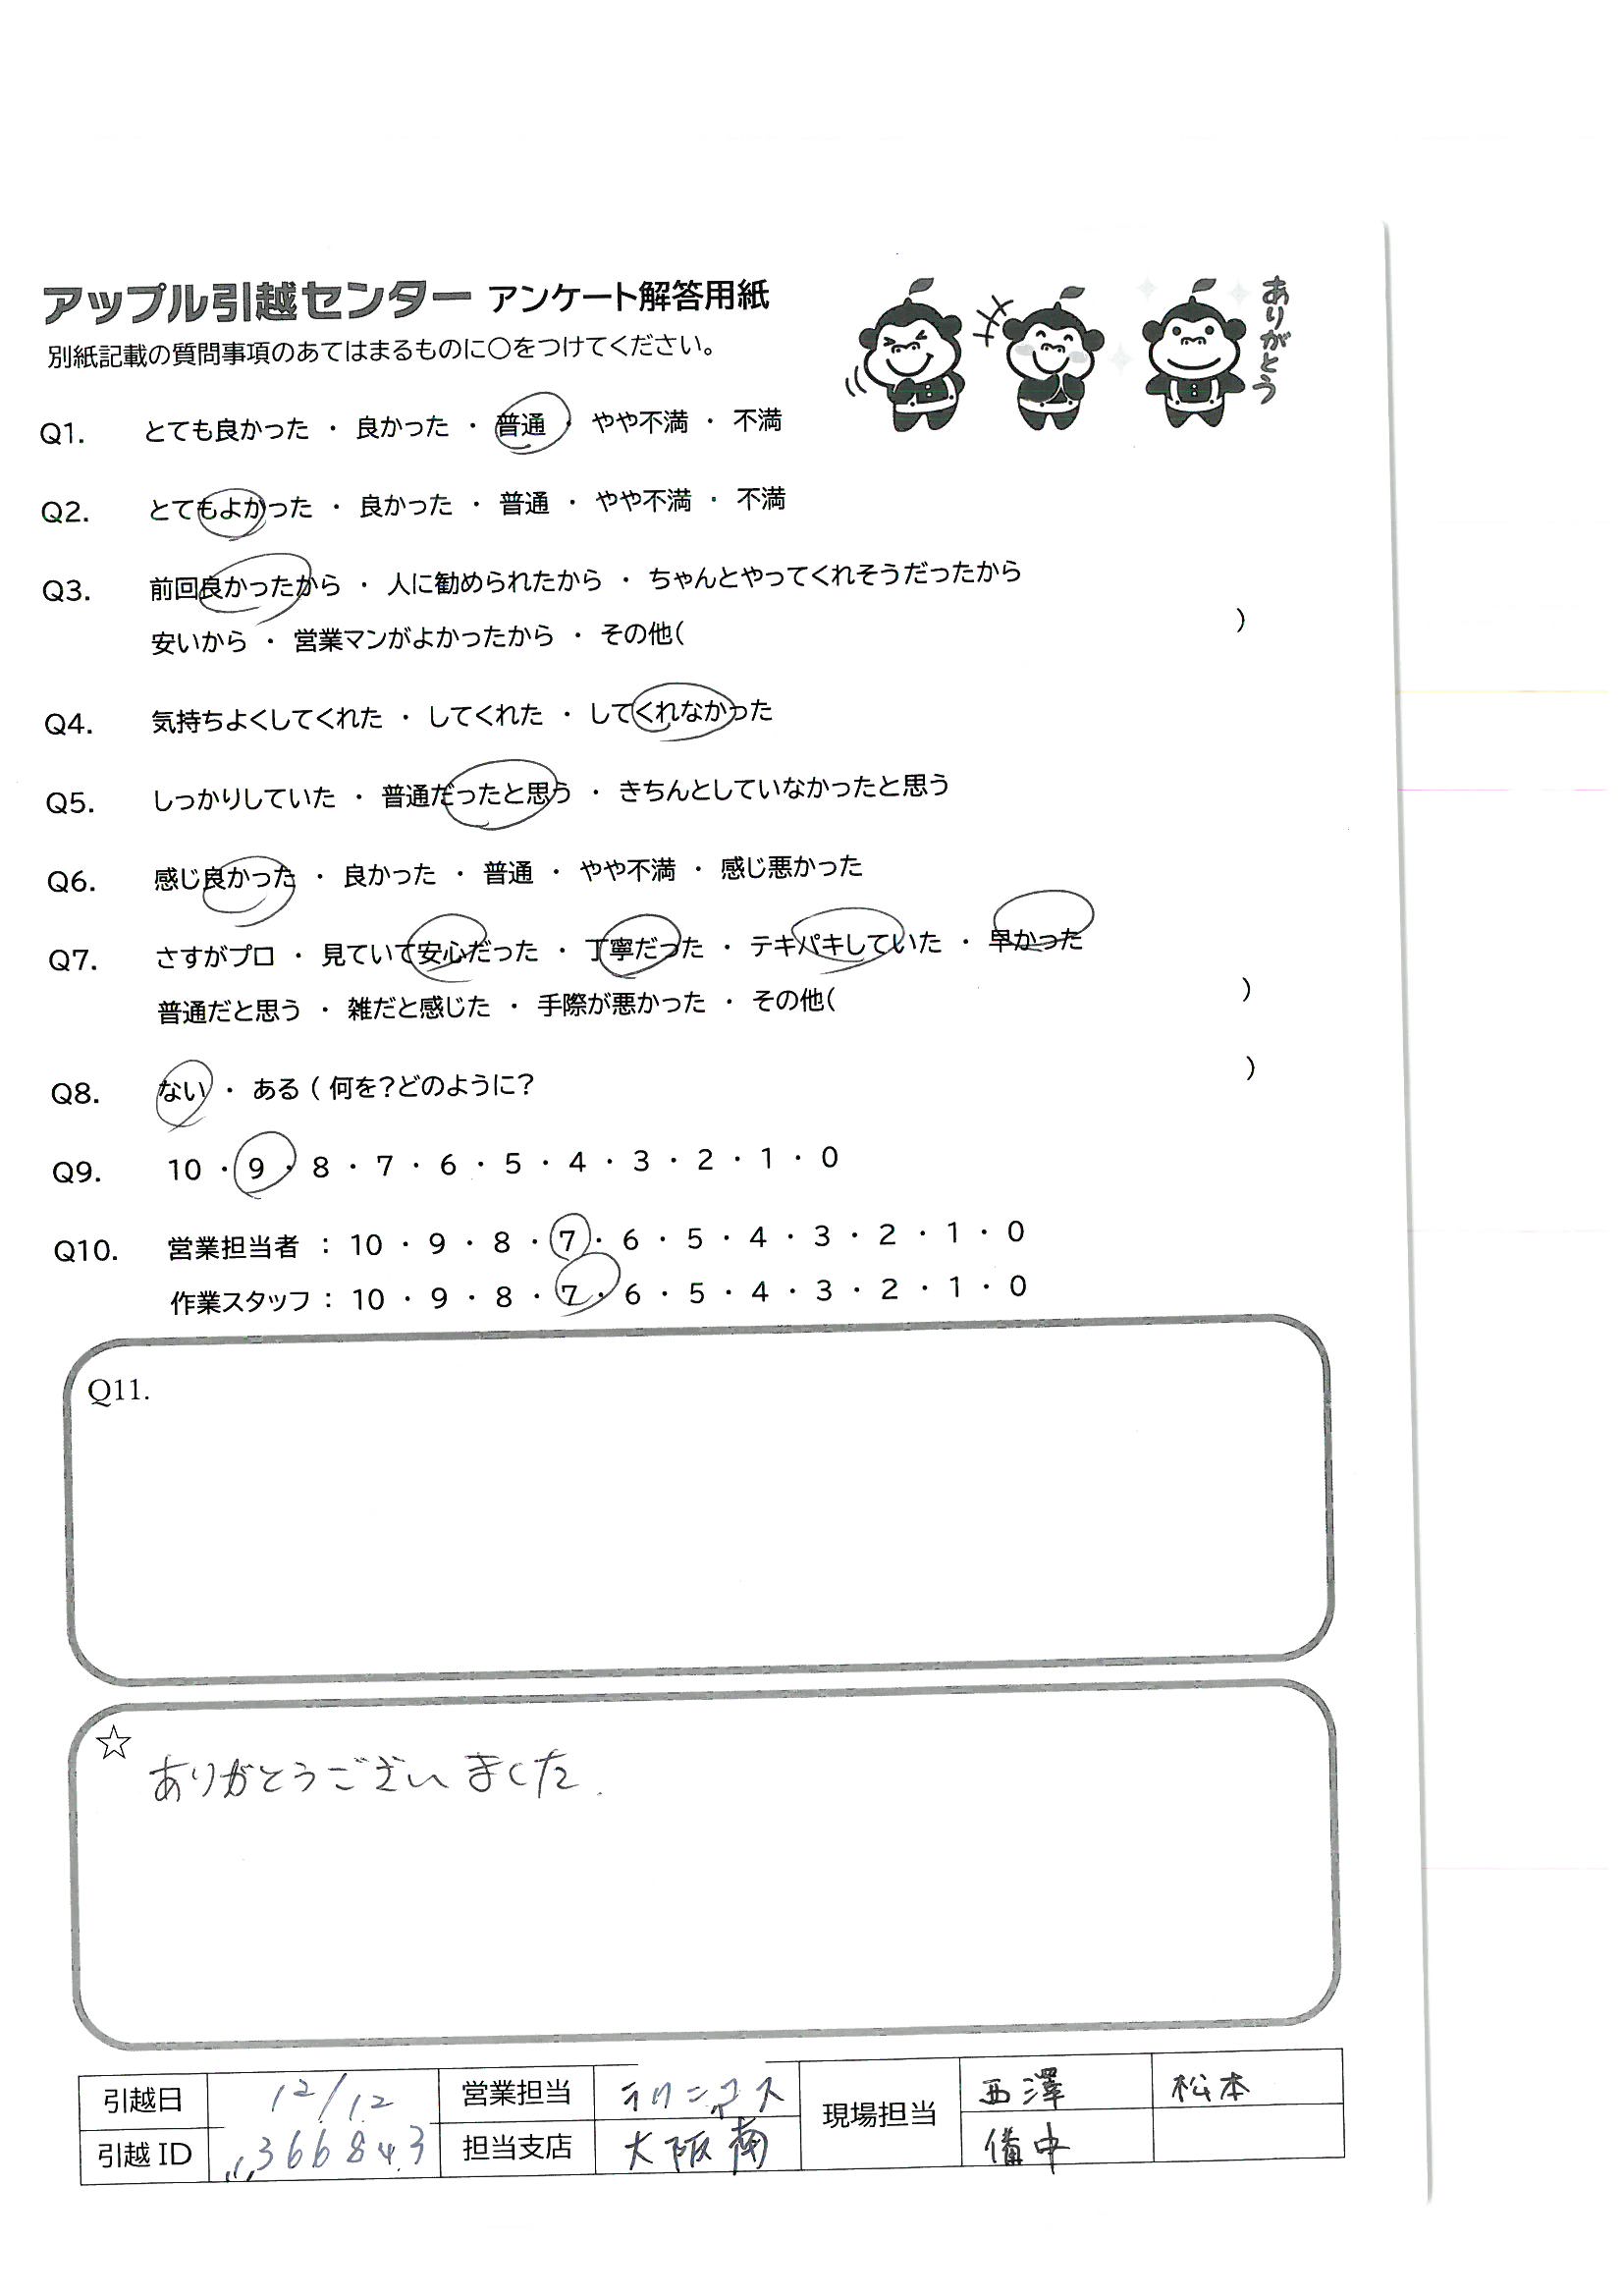 アップル引越センター アンケート解答用紙
ありがとう
別紙記載の質問事項のあてはまるものに○をつけてください。
Q1. とても良かった ・ 良かった ・ 普通 ・ やや不満 ・ 不満
Q2. とてもよかった ・ 良かった ・ 普通 ・ やや不満 ・ 不満
Q3. 前回良かったから ・ 人に勧められたから ・ ちゃんとやってくれそうだったから
安いから ・ 営業マンがよかったから ・ その他( )
Q4. 気持ちよくしてくれた ・ してくれた ・ してくれなかった
Q5. しっかりしていた ・ 普通だったと思う ・ きちんとしていなかったと思う
Q6. 感じ良かった ・ 良かった ・ 普通 ・ やや不満 ・ 感じ悪かった
Q7. さすがプロ ・ 見ていて安心だった ・ 丁寧だった ・ テキパキしていた ・ 早かった
普通だと思う ・ 雑だと感じた ・ 手際が悪かった ・ その他( )
Q8. ない ・ ある ( 何を?どのように? )
Q9. 10 ・ 9 ・ 8 ・ 7 ・ 6 ・ 5 ・ 4 ・ 3 ・ 2 ・ 1 ・ 0
Q10. 営業担当者 : 10 ・ 9 ・ 8 ・ 7 ・ 6 ・ 5 ・ 4 ・ 3 ・ 2 ・ 1 ・ 0
作業スタッフ : 10 ・ 9 ・ 8 ・ 7 ・ 6 ・ 5 ・ 4 ・ 3 ・ 2 ・ 1 ・ 0
Q11.
☆ ありがとうございました.
引越日 12/12 営業担当 現場担当 西澤 松本
引越 ID 366843 担当支店 大阪南 備中